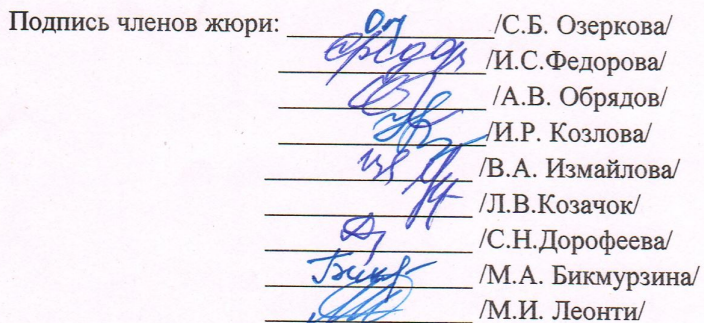 Подпись членов жюри: ____________ /С.Б. Озеркова/
____________ /И.С.Федорова/
____________ /А.В. Обрядов/
____________ /И.Р. Козлова/
____________ /В.А. Измайлова/
____________ /Л.В.Козачок/
____________ /С.Н.Дорофеева/
____________ /М.А. Бикмурзина/
____________ /М.И. Леонти/